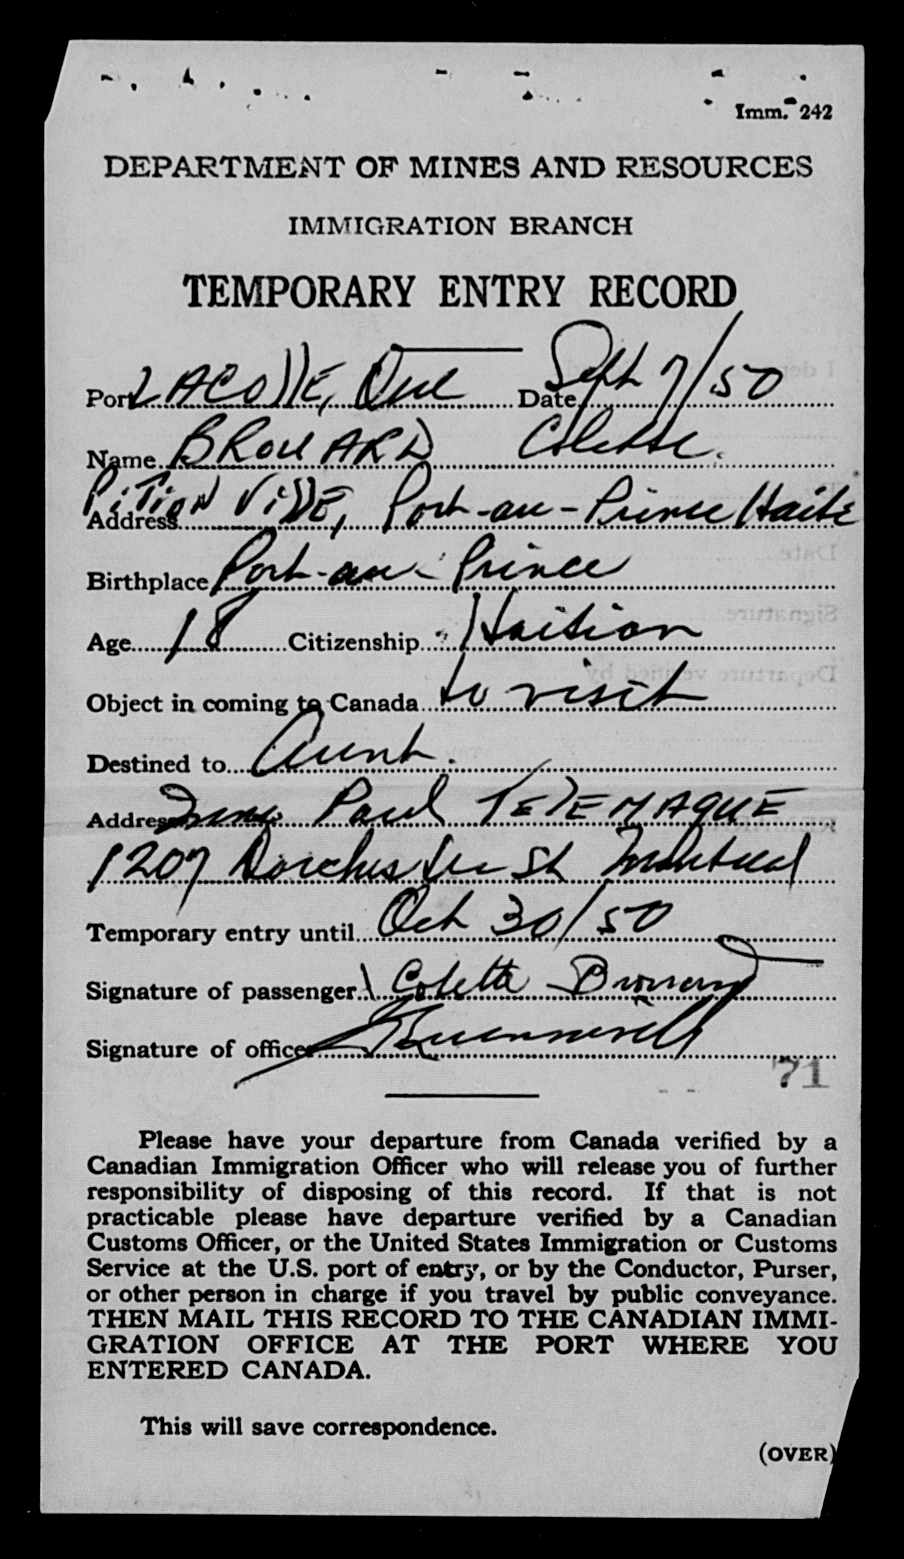 Imm. 242
DEPARTMENT OF MINES AND RESOURCES
IMMIGRATION BRANCH
TEMPORARY ENTRY RECORD
Port LACOllE, Que Date Sept 7/50
Name BROUARD Colette
Address PiTION VillE, Port-au-Prince Haiti
Birthplace Port-au-Prince
Age 18 Citizenship Haitian
Object in coming to Canada to visit
Destined to Aunt.
Address Paul TElEMAQUE
1207 Dorchester St Montreal
Temporary entry until Oct 30/50
Signature of passenger Colette Brouard
Signature of officer
71
Please have your departure from Canada verified by a
Canadian Immigration Officer who will release you of further
responsibility of disposing of this record. If that is not
practicable please have departure verified by a Canadian
Customs Officer, or the United States Immigration or Customs
Service at the U.S. port of entry, or by the Conductor, Purser,
or other person in charge if you travel by public conveyance.
THEN MAIL THIS RECORD TO THE CANADIAN IMMI-
GRATION OFFICE AT THE PORT WHERE YOU
ENTERED CANADA.
This will save correspondence.
(OVER)